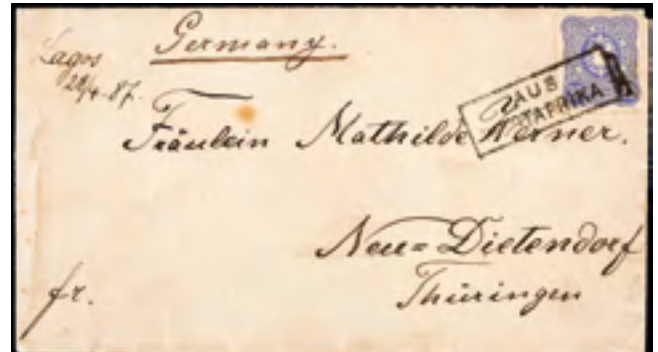 Germany.
Lagos
29/4.87.
AUS
WESTAFRIKA
Fräulein Mathilde Werner.
Neu=Dietendorf
Thüringen
fr.